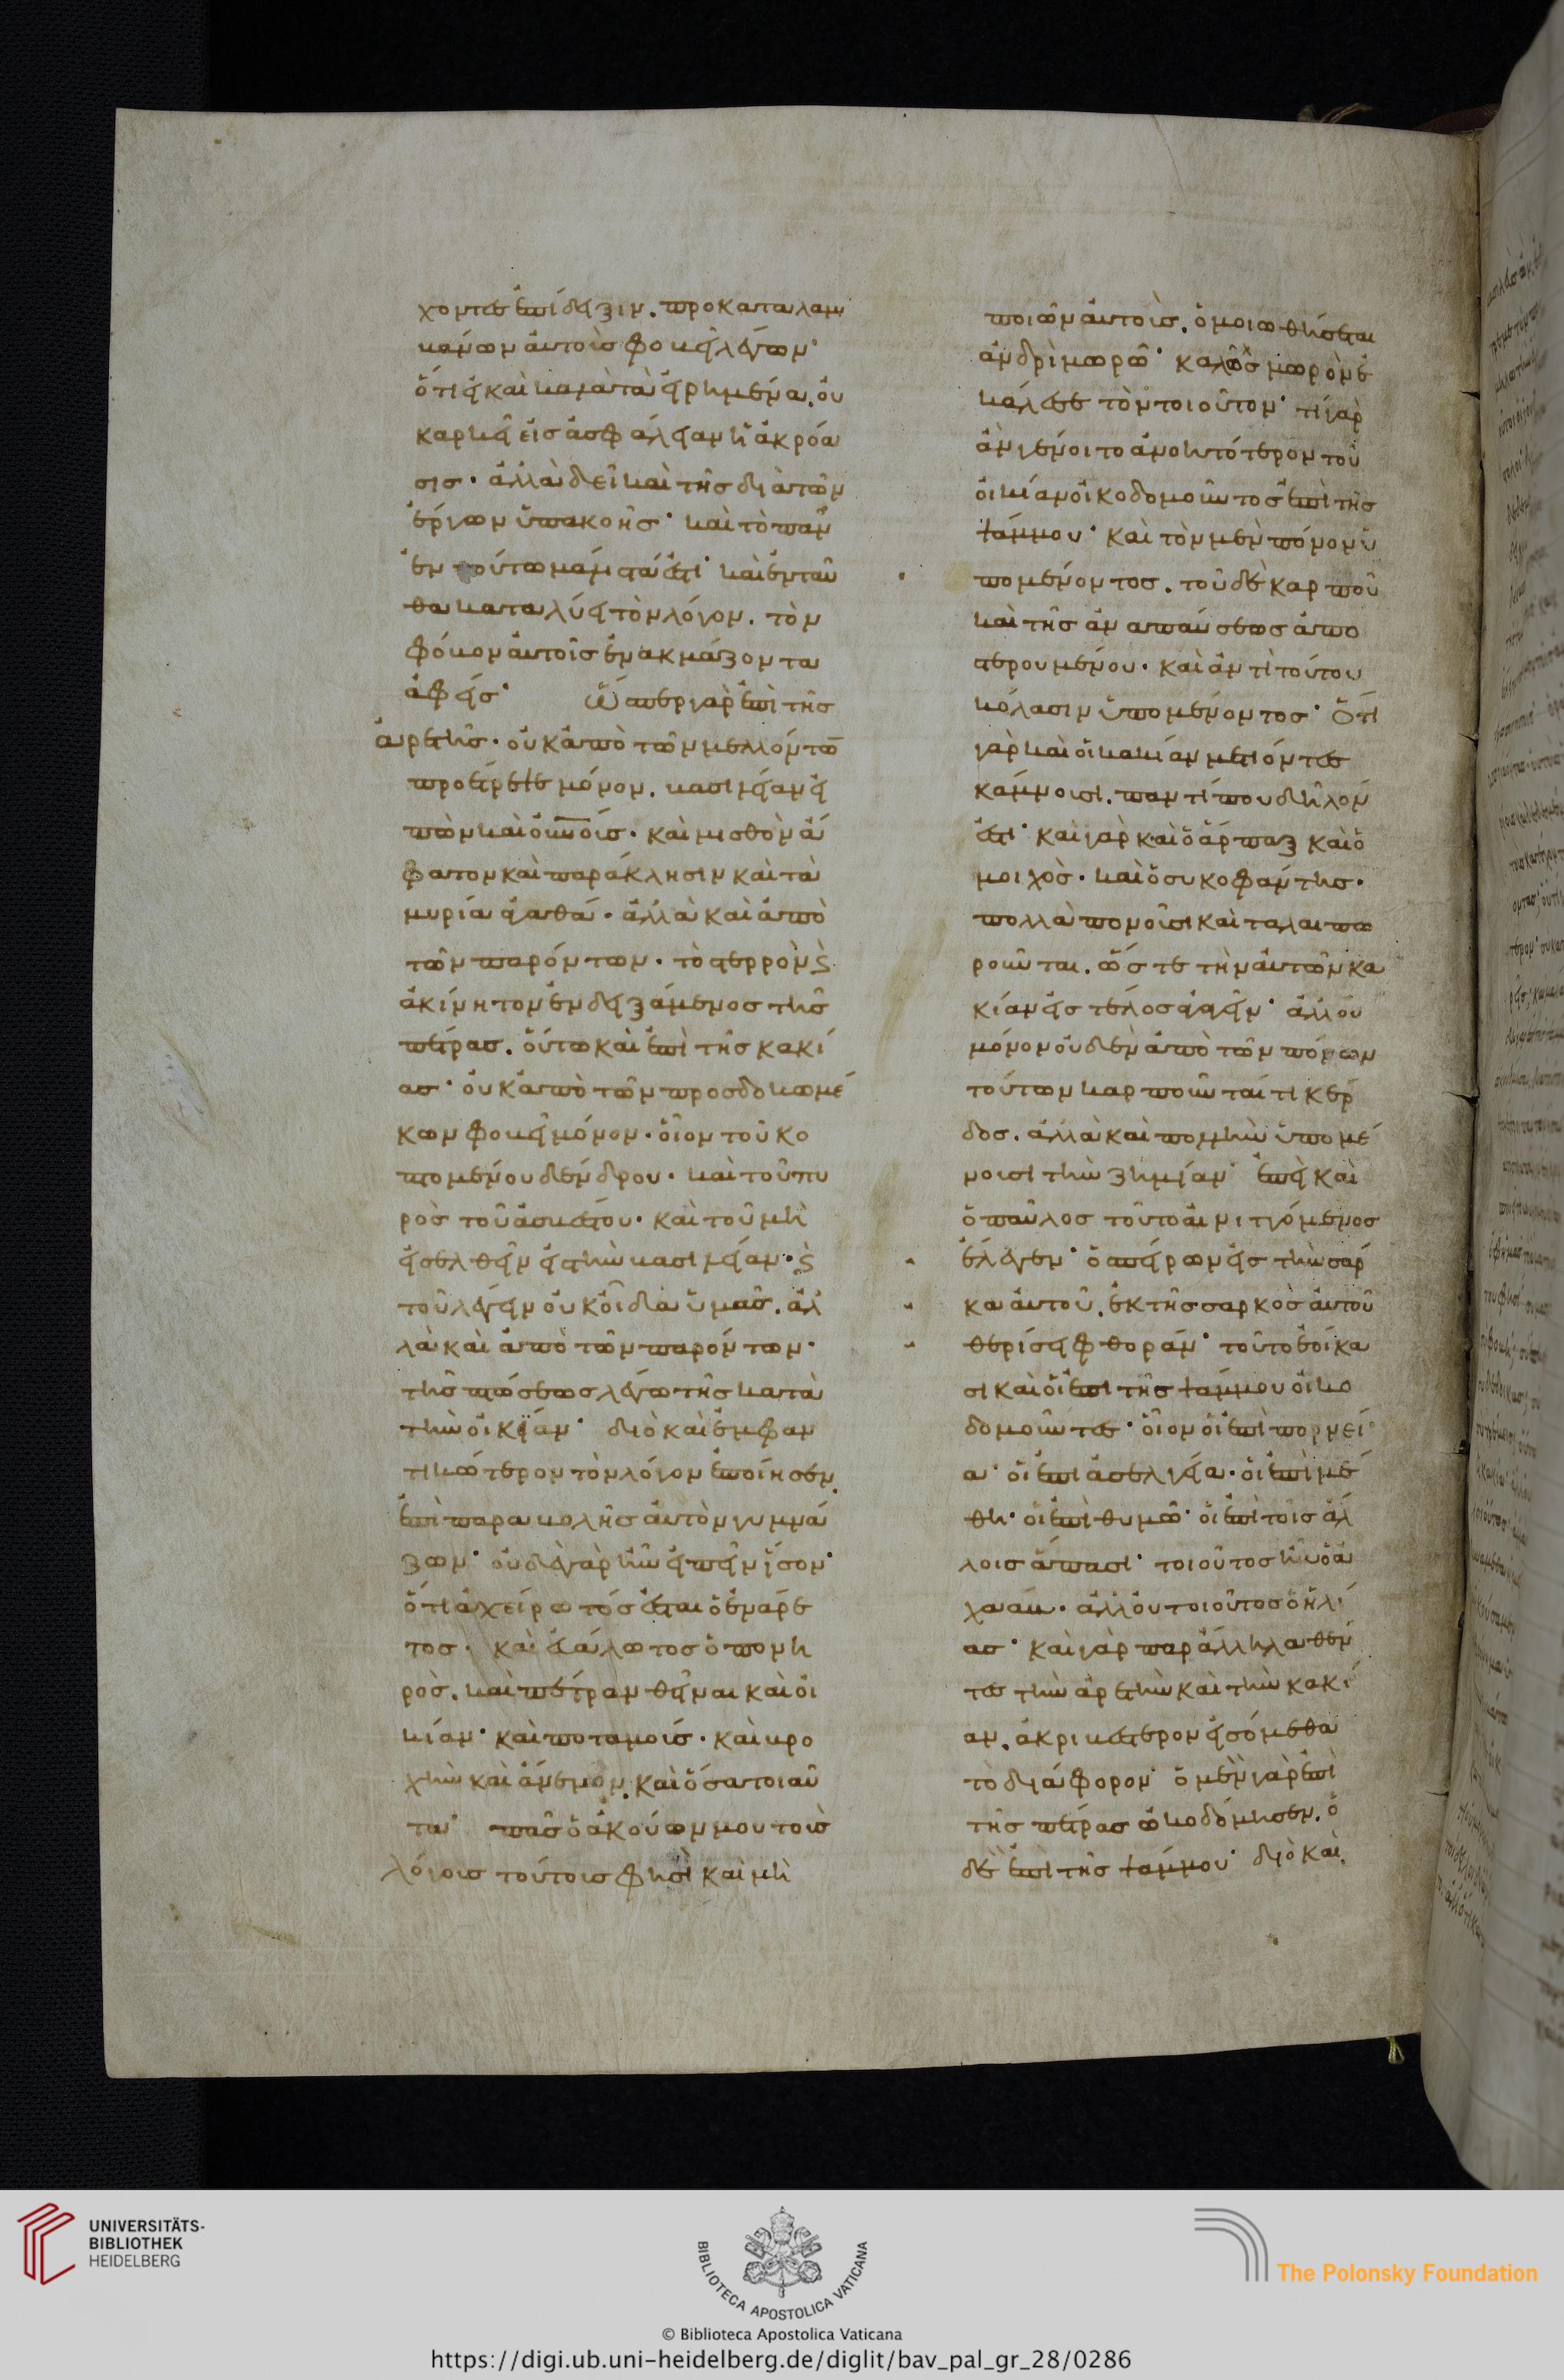 χοντες ἐπίδειξιν. προκαταλαμ
βάνων αὐτοὺς φοβεῖ λέγων·
ὅτι εἰ καὶ καλὰ τὰ εἰρημένα, οὐκ
ἀρκεῖ εἰς ἀσφάλειαν ἡ ἀκρόα
σις· ἀλλὰ δεῖ καὶ τῆς διὰ τῶν
ἔργων ὑπακοῆς· καὶ τὸ πᾶν
ἐν τούτω μάλιστά ἐστι· καὶ ἐνταῦ
θα καταλύει τὸν λόγον. τὸν
φόβον αὐτοῖς ἐνακμάζοντα
ἀφείς· Ὥσπερ γὰρ ἐπὶ τῆς
ἀρετῆς· οὐκ ἀπὸ τῶν μελλόντων
προέτρεψε μόνον. βασιλείαν εἰ
πὼν καὶ οὐνοὺς· καὶ μισθὸν ἄ
φατον καὶ παράκλησιν καὶ τὰ
μυρία ἀγαθά· ἀλλὰ καὶ ἀπὸ
τῶν παρόντων· τὸ στερρὸν ϛ
ἀκίνητον ἐνδειξάμενος τῆς
πέτρας. οὕτω καὶ ἐπὶ τῆς κακί
ας· οὐκ ἀπὸ τῶν προσδοκωμέ
νων φοβεῖ μόνον· οἷον τοῦ κο
πτομένου δένδρου· καὶ τοῦ πυ
ρὸς τοῦ ἀσβέστου· καὶ τοῦ μὴ
εἰσελθεῖν εἰς τὴν βασιλείαν· ϛ
τοῦ λέγειν οὐκ οἶδα ὑμᾶς. ἀλ
λὰ καὶ ἀπὸ τῶν παρόντων·
τῆς πτώσεως λέγω τῆς κατὰ
τὴν οἰκίαν· διὸ καὶ ἐμφαν
τικώτερον τὸν λόγον ἐποίησεν.
ἐπὶ παραβολῆς αὐτὸν γυμνά
ζων· οὐδὲ γὰρ ἦν εἰπεῖν ἴσον·
ὅτι ἀχείρωτός ἔσται ὁ ἐνάρε
τος· καὶ εὐάλωτος ὁ πονη
ρὸς. καὶ πέτραν θεῖναι καὶ οἰ
κίαν· καὶ ποταμοὺς· καὶ βρο
χὴν καὶ ἄνεμον. καὶ ὅσα τοιαῦ
τα· πᾶς ὁ ἀκούων μου τοὺς
λόγους τούτους φησὶ καὶ μὴ
ποιῶν αὐτοὺς. ὁμοιωθήσεται
ἀνδρὶ μωρῶ· καλῶς μωρὸν ἐ
κάλεσε τὸν τοιοῦτον· τί γὰρ
ἂν γένοιτο ἀνοητότερον τοῦ
οἰκίαν οἰκοδομοῦντος ἐπὶ τῆς
ψάμμου· καὶ τὸν μὲν πόνον ὑ
πομένοντος. τοῦ δὲ καρποῦ
καὶ τῆς ἀναπαύσεως ἀπο
στερουμένου· καὶ ἀντὶ τούτου
κόλασιν ὑπομένοντος· Ὅτι
γὰρ καὶ οἱ κακίαν μετιόντες
κάμνουσι. παντί που δῆλόν
ἐστι· καὶ γὰρ καὶ ὁ ἅρπαξ καὶ ὁ
μοιχὸς· καὶ ὁ συκοφάντης·
πολλὰ πονοῦσι καὶ ταλαιπω
ροῦνται. ὥστε τὴν αὐτῶν κα
κίαν εἰς τέλος ἀγαγεῖν· ἀλλ οὐ
μόνον οὐδὲν ἀπὸ τῶν πόνων
τούτων καρποῦνταί τι κέρ
δος. ἀλλὰ καὶ πολλὴν ὑπομέ
νουσι τὴν ζημίαν· ἐπεὶ καὶ
ὁ παῦλος τοῦτο αἰνιττόμενος
ἔλεγεν· ὁ σπείρων εἰς τὴν σάρ
κα αὐτοῦ. ἐκ τῆς σαρκὸς αὐτοῦ
θερίσει φθοράν· τούτω ἐοίκα
σι καὶ οἱ ἐπὶ τῆς ψάμμου οἰκο
δομοῦντες· οἷον οἱ ἐπὶ πορνεί
α· οἱ ἐπὶ ἀσελγεία· οἱ ἐπὶ μέ
θη· οἱ ἐπὶ θυμῶ· οἱ ἐπὶ τοῖς ἄλ
λοις ἅπασι· τοιοῦτος ἦν ὁ ἀ
χαάβ· ἀλλ οὐ τοιοῦτος ὁ ἡλί
ας· καὶ γὰρ παράλληλα θέν
τες τὴν ἀρετὴν καὶ τὴν κακί
αν. ἀκριβέστερον εἰσόμεθα
τὸ διάφορον· ὁ μὲν γὰρ ἐπὶ
τῆς πέτρας ὠκοδόμησεν. ὁ
δὲ ἐπὶ τῆς ψάμμου· διὸ καὶ
UNIVERSITÄTS-
BIBLIOTHEK
HEIDELBERG
BIBLIOTECA APOSTOLICA VATICANA
The Polonsky Foundation
© Biblioteca Apostolica Vaticana
https://digi.ub.uni-heidelberg.de/diglit/bav_pal_gr_28/0286